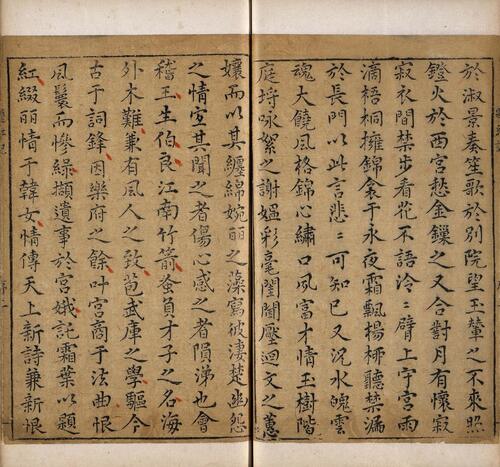 於淑景奏笙歌於別院望玉輦之不來照
鐙火於西宮愁金鏁之又合對月有懷寂
寂衣間禁步看花不語泠〻臂上守宮雨
滴梧桐擁錦衾于永夜霜飄楊柳聽禁漏
於長門以此言悲〻可知已又況水魄雲
魂大饒風格錦心繡口夙富才情玉樹階
庭埒咏絮之謝媼彩毫閨閫壓迴文之蕙
孃而以其纏綿婉麗之藻寫彼淒楚幽怨
之情宜其聞之者傷心感之者隕涕也會
稽王生伯良江南竹箭蚤負才子之名海
外木難兼有風人之致苞武庫之學驅今
古于詞鋒因樂府之餘叶宮商于法曲恨
風鬟而慘綠擷遺事於宮娥託霜葉以題
紅綴丽情于韓女情傳天上新詩兼新恨